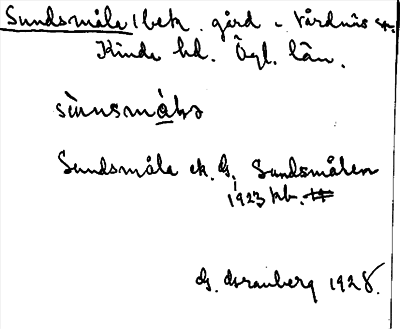 Sundsmåla 1 bek. gård i Vårdnäs sn.
Kinda hd. Ögl. län.
sùnsmàla
Sundsmåla ek. G. Sundsmålen
1923 kb.
G. Granberg 1928.